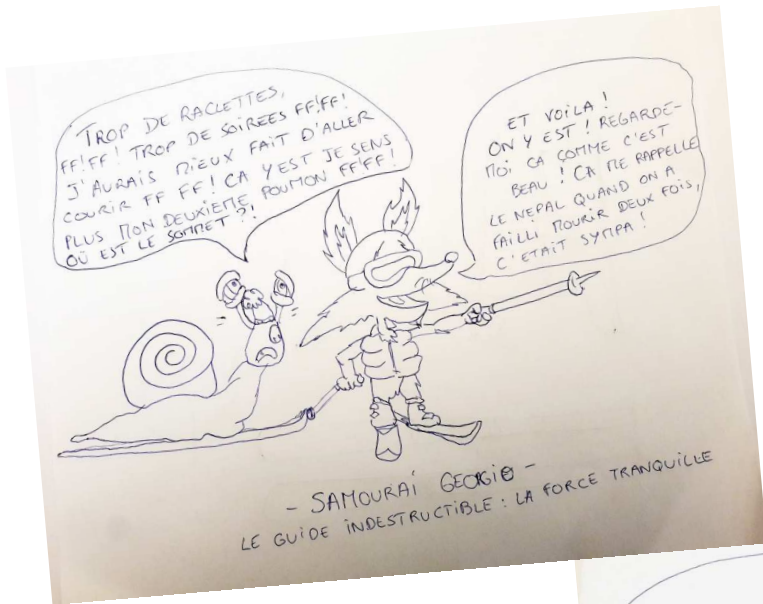 TROP DE RACLETTES,
FF!FF! TROP DE SOIREES FF!FF!
J'AURAIS MIEUX FAIT D'ALLER
COURIR FF FF! CA YEST JE SENS
PLUS MON DEUXIEME POUMON FF!FF!
OÙ EST LE SOMMET ?!
ET VOILA !
ON Y EST ! REGARDE-
MOI CA COMME C'EST
BEAU ! CA ME RAPPELLE
LE NEPAL QUAND ON A
FAILLI MOURIR DEUX FOIS,
C'ETAIT SYMPA !
- SAMOURAÏ GEORGIO -
LE GUIDE INDESTRUCTIBLE : LA FORCE TRANQUILLE